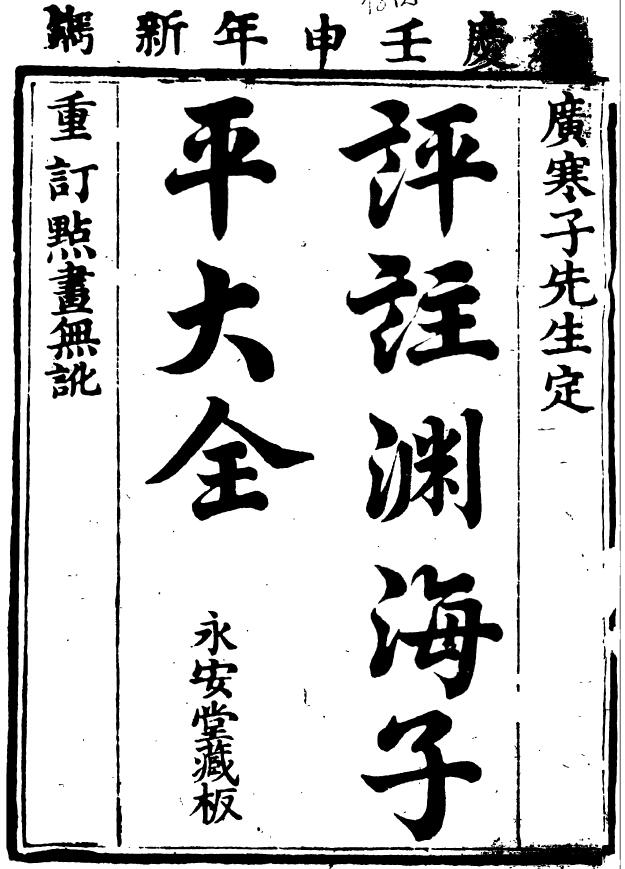 慶壬申年新鐫
廣寒子先生定
評註渊海子
平大全
永安堂藏板
重訂點畫無訛